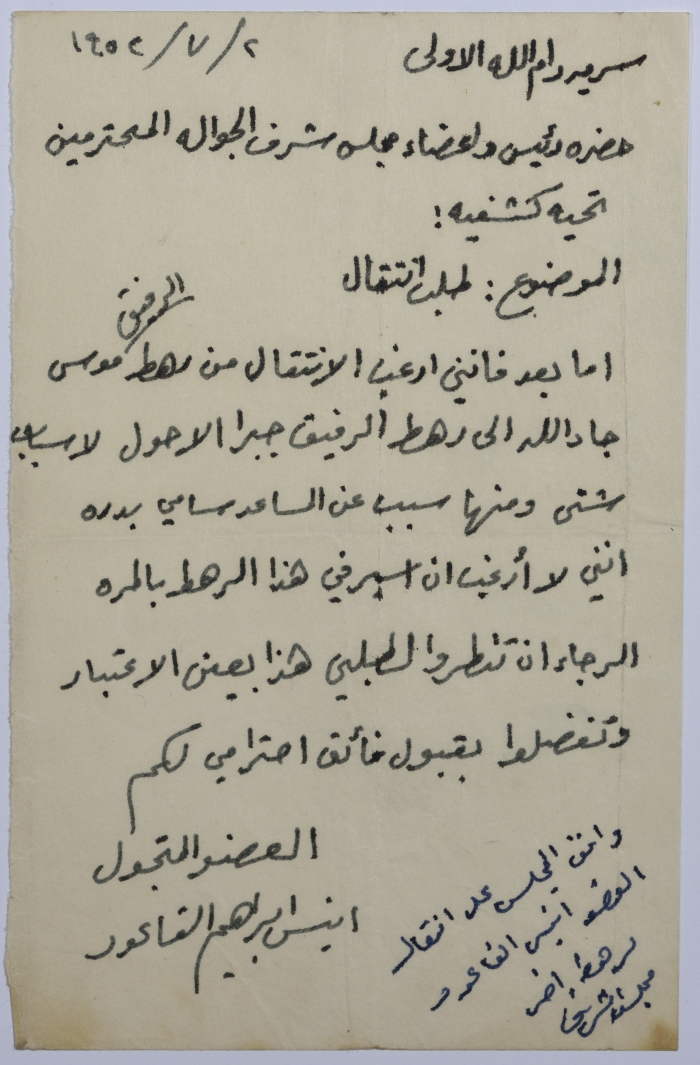 سريه رام الله الاولى
٢ / ٧ / ١٩٥٢
حضره رئيس واعضاء مجلس شرف الجواله المحترمين
تحيه كشفيه :
الموضوع : طلب انتقال
اما بعد فانني ارغب الانتقال من رهط الرفيق موسى
جادالله الى رهط الرفيق جبرا الاحول لاسباب
شتى ومنها سبب عن المساعد سامي بدره
انني لا أرغب ان اسير في هذا الرهط بالمره
الرجاء ان تنظروا لطلبي هذا بعين الاعتبار
وتفضلوا بقبول فائق احترامي لكم
العضو المتجول
انيس ابراهيم القاعود
وافق المجلس على انتقال
العضو انيس القاعود
لرهط اخر
مجلس